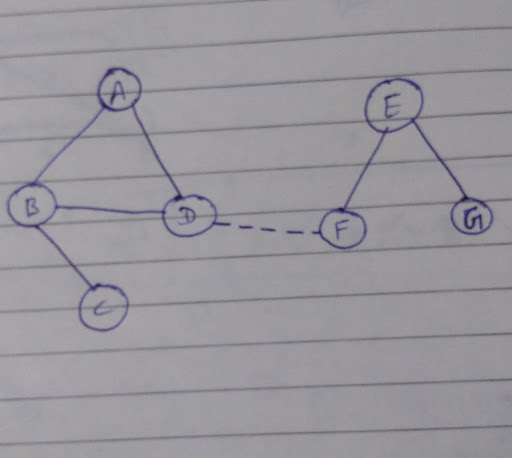 A
E
B
D
F
G
C